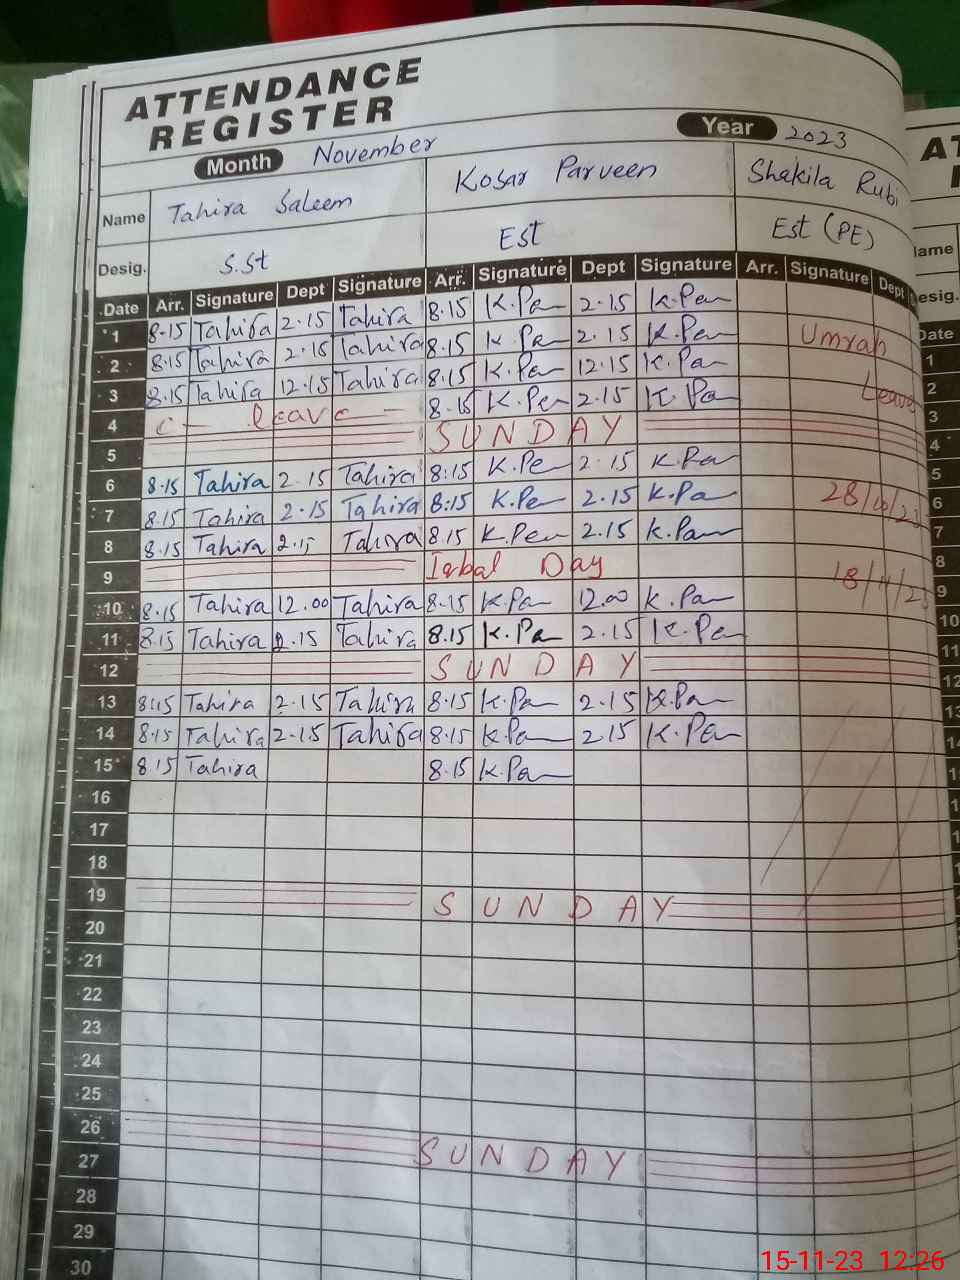 ATTENDANCE
REGISTER
Month November Year 2023
Name Tahira Saleem Kosar Parveen Shakila Rubi
Desig. S.St Est Est (PE)
Date Arr. Signature Dept Signature Arr. Signature Dept Signature Arr. Signature Dept
1 8-15 Tahira 2.15 Tahira 8.15 K.Pan 2.15 K.Pan Umrah
2 8.15 Tahira 2.15 Tahira 8.15 K.Pan 2.15 K.Pan
3 8.15 Tahira 12.15 Tahira 8.15 K.Pan 12.15 K.Pan Leave
4 C- leave - 8.15 K.Pen 2.15 K Pan
5 SUNDAY
6 8.15 Tahira 2.15 Tahira 8.15 K.Pe 2.15 K.Pan
7 8.15 Tahira 2.15 Tahira 8.15 K.Pen 2.15 K.Pa
8 8.15 Tahira 2.15 Tahira 8.15 K.Pen 2.15 K.Pan
9 Iqbal Day
10 8.15 Tahira 12.00 Tahira 8.15 K.Pan 12.00 K.Pan
11 8.15 Tahira 2.15 Tahira 8.15 K.Pan 2.15 K.Pan
12 SUNDAY
13 8.15 Tahira 2.15 Tahira 8.15 K.Pan 2.15 K.Pan
14 8.15 Tahira 2.15 Tahira 8.15 K.Pan 2.15 K.Pan
15 8.15 Tahira 8.15 K.Pan
16
17
18
19 SUNDAY
20
21
22
23
24
25
26 SUNDAY
27
28
29
30
Date
1
2
3
4
5
6
7
8
9
10
11
12
15-11-23 12:26